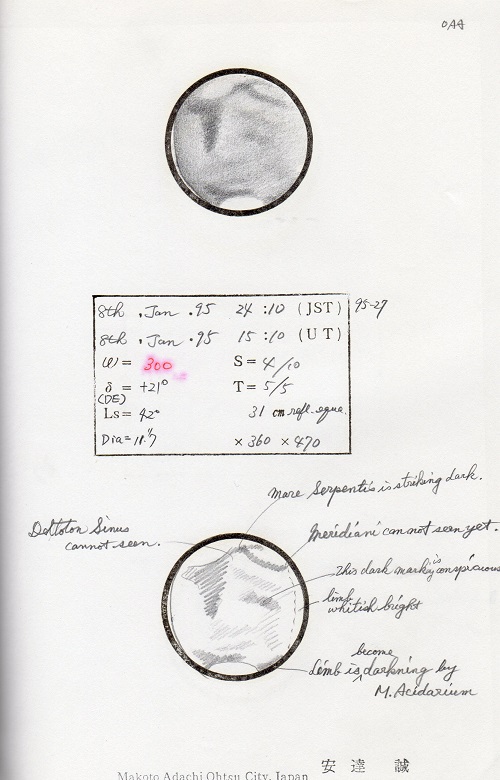 OAA
8th, Jan .95 24:10 (JST) 95-27
8th, Jan .95 15:10 (UT)
ω = 300 S = 4/10
δ = +21° T = 5/5
(DE)
Ls = 42° 31 cm refl. eque.
Dia = 11".7 ×360 ×470
mare Serpentis is striking dark.
Deltoton Sinus
cannot seen.
Meridiani can not seen yet.
This dark marking is conspicious
limb
whitish bright
Limb is become darkning by
M. Acidarium
安達 誠
Makoto Adachi Ohtsu City, Japan